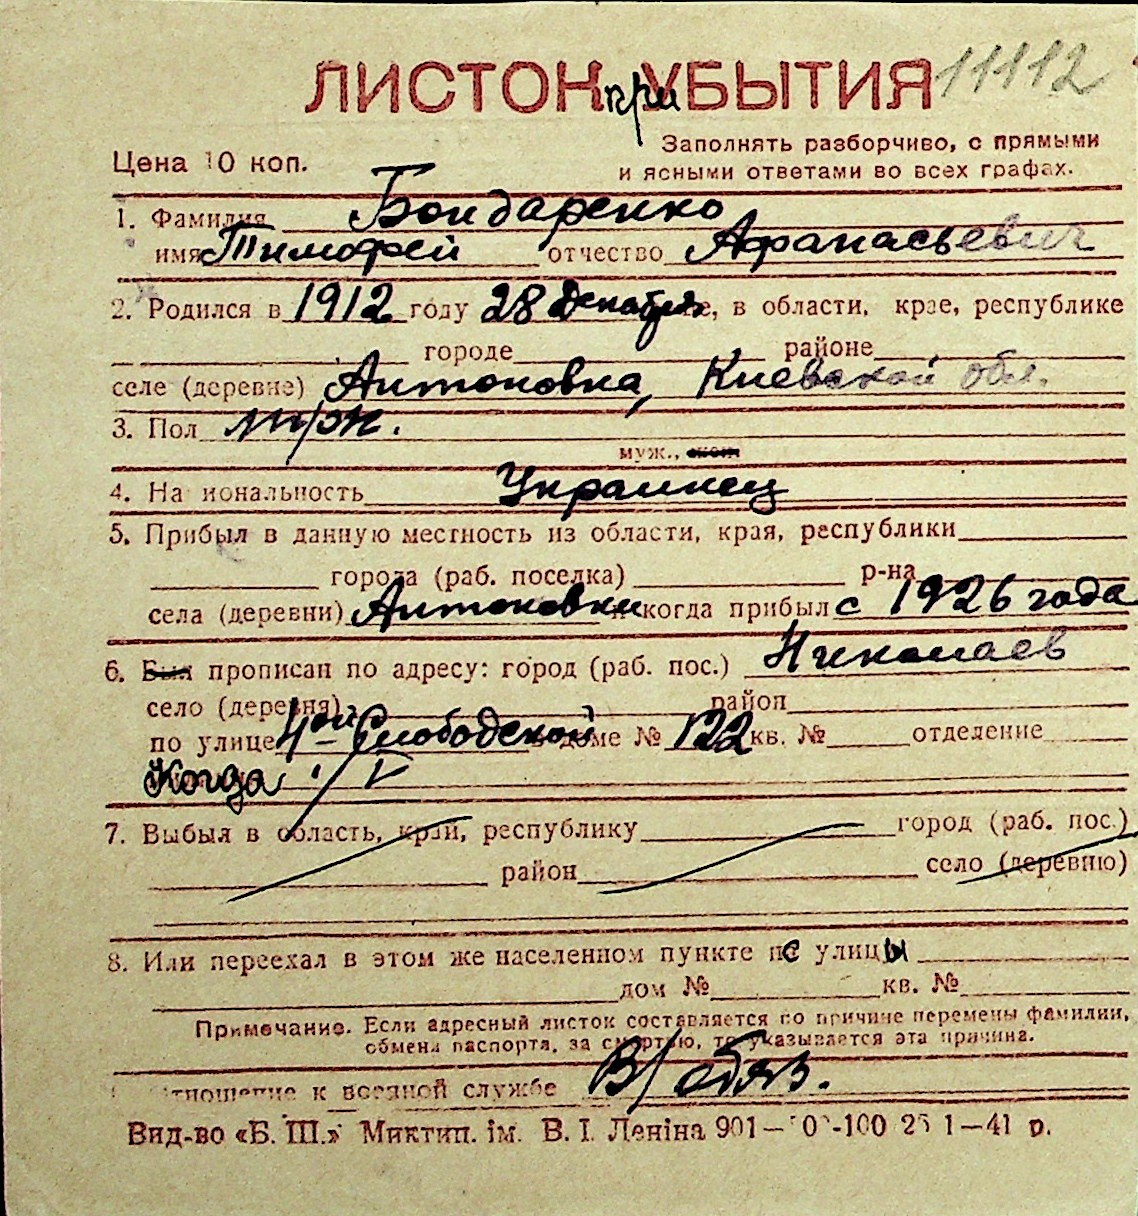 ЛИСТОК при УБЫТИЯ 11112
Цена 10 коп.
Заполнять разборчиво, с прямыми
и ясными ответами во всех графах.
1. Фамилия Бондаренко
имя Тимофей отчество Афанасьевич
2. Родился в 1912 году 28 декабря, в области, крае, республике
городе районе
селе (деревне) Антоновка, Киевской обл.
3. Пол
муж.,
4. На иональность Украинец
5. Прибыл в данную местность из области, края, республики
города (раб. поселка) р-на
села (деревни) Антоновки и когда прибыл с 1926 года
6. Был прописан по адресу: город (раб. пос.) Николаев
село (деревня) район
по улице Слободской в доме № 122 кв. № отделение
Когда
7. Выбыл в область, край, республику город (раб. пос.)
район село (деревню)
8. Или переехал в этом же населенном пункте с улицы
дом № кв. №
Примечание. Если адресный листок составляется по причине перемены фамилии,
обмена паспорта, за смертью, то указывается эта причина.
тношение к военной службе В/обяз.
Вид-во «Б. Ш.» Миктип. ім. В. І. Леніна 901— -100 1—41 р.